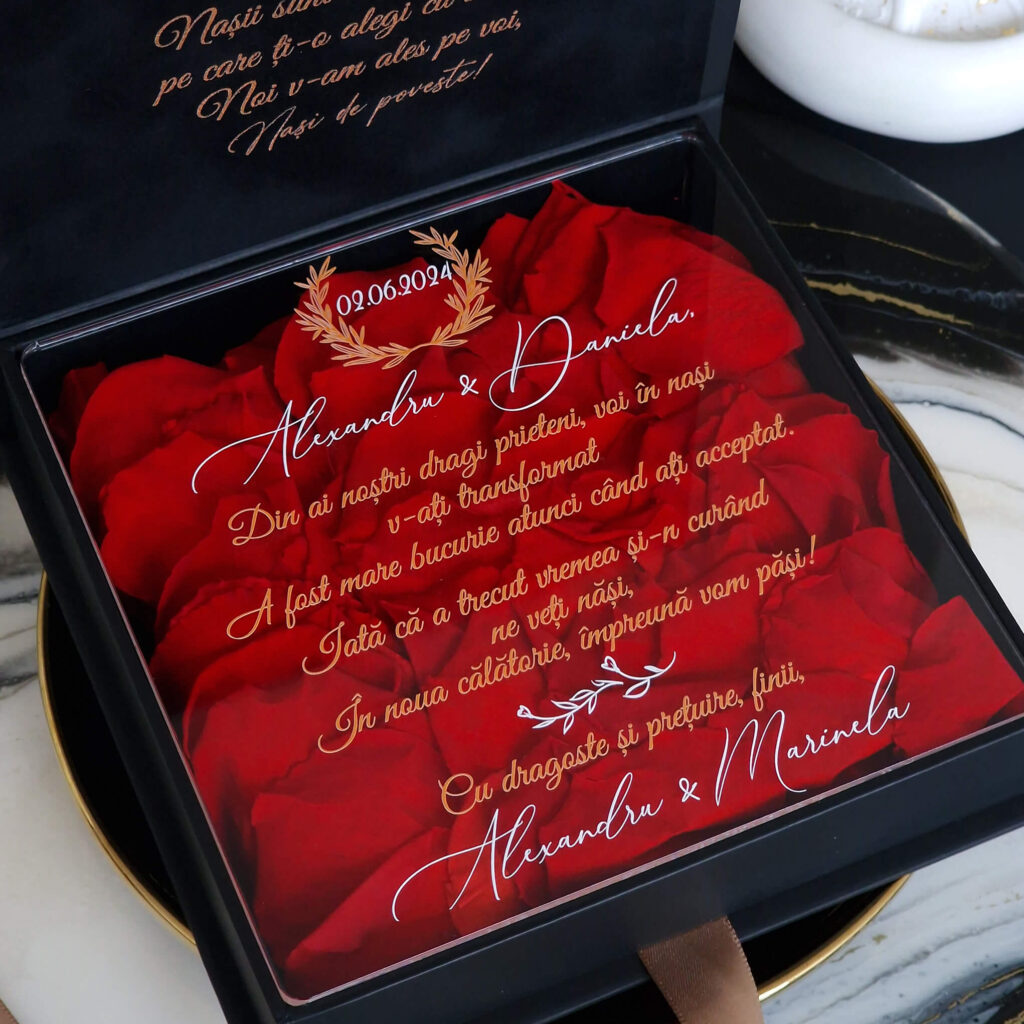 Nașii sunt
pe care ți-o alegi cu
Noi v-am ales pe voi,
Nași de poveste!
02.06.2024
Alexandru & Daniela,
Din ai noștri dragi prieteni, voi în nași
v-ați transformat
A fost mare bucurie atunci când ați acceptat.
Iată că a trecut vremea și-n curând
ne veți năși,
În noua călătorie, împreună vom păși!
Cu dragoste și prețuire, finii,
Alexandru & Marinela